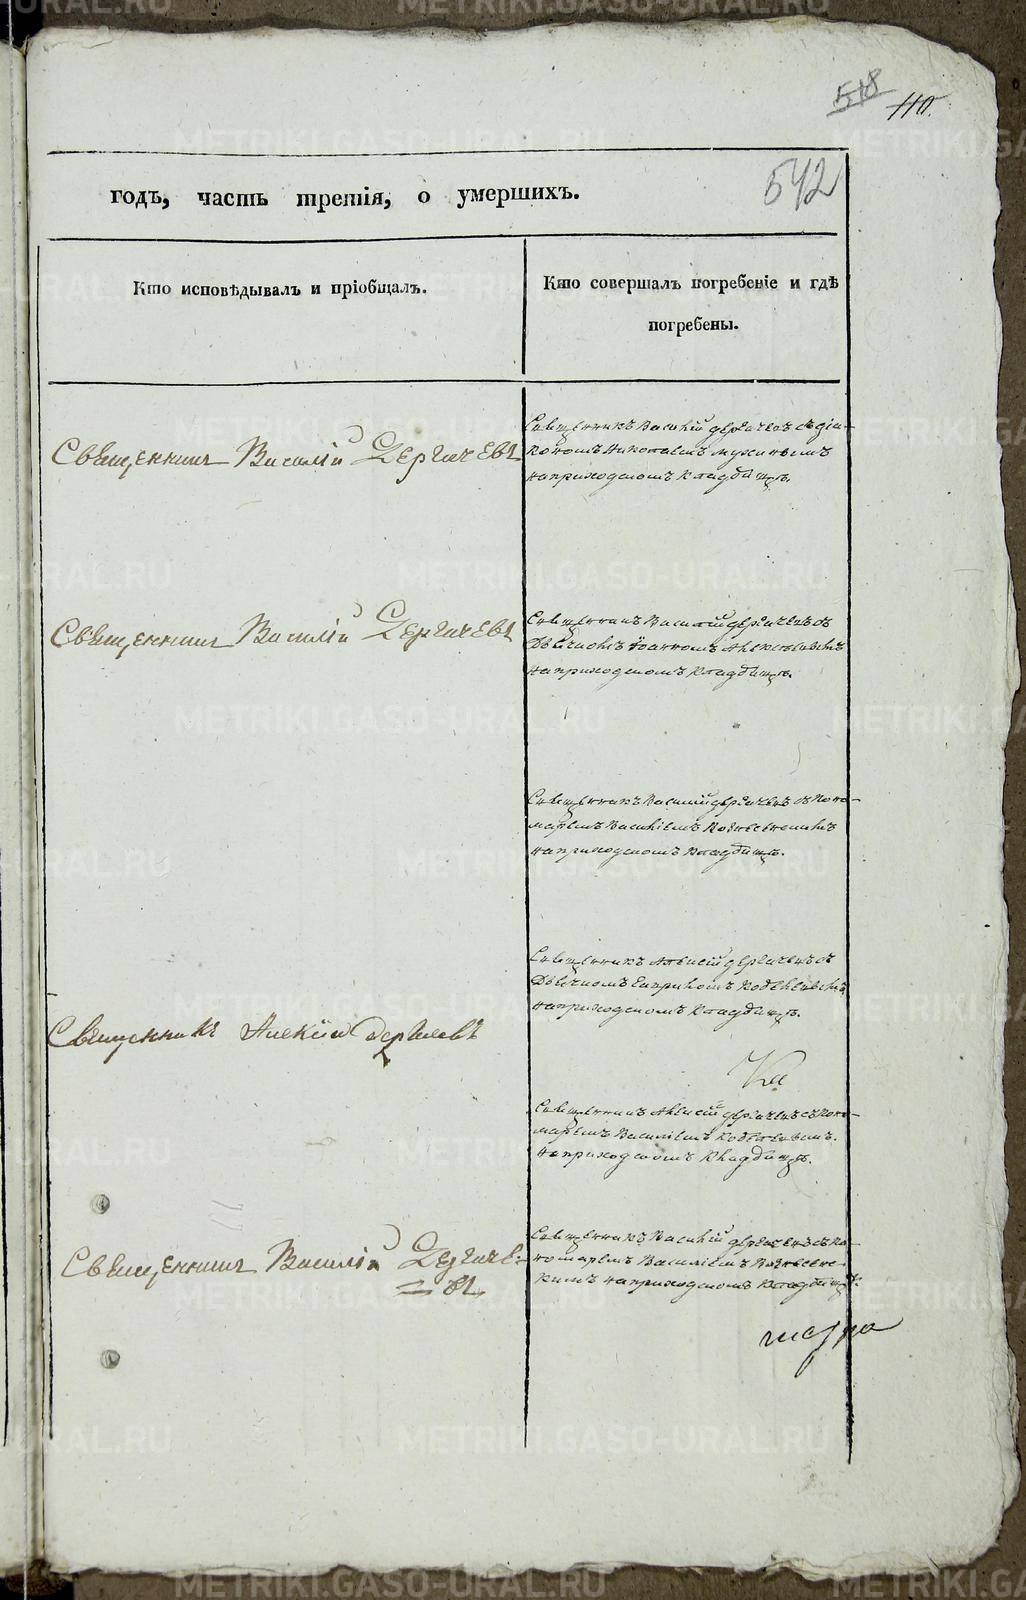 518
110.
542
годъ, часть третія, о умершихъ.
Кто исповѣдывалъ и пріобщалъ.
Кто совершалъ погребеніе и гдѣ
погребены.
Священникъ Василій Дергачевъ
Священникъ Василій Дергачевъ съ діа-
кономъ Николаемъ
на приходскомъ кладбищѣ.
Священникъ Василій Дергачевъ
Священникъ Василій Дергачевъ съ
Дьячкомъ Іоанномъ
на приходскомъ кладбищѣ.
Священникъ Василій Дергачевъ съ поно-
маремъ Василіемъ
на приходскомъ кладбищѣ.
Священникъ Алексій Дергачевъ
Священникъ Алексій Дергачевъ съ
Дьячкомъ
на приходскомъ кладбищѣ.
Священникъ Алексій Дергачевъ съ поно-
маремъ Василіемъ
на приходскомъ кладбищѣ.
Священникъ Василій Дергаче-
въ
Священникъ Василій Дергачевъ съ по-
номаремъ Василіемъ
на приходскомъ кладбищѣ.
METRIKI.GASO-URAL.RU